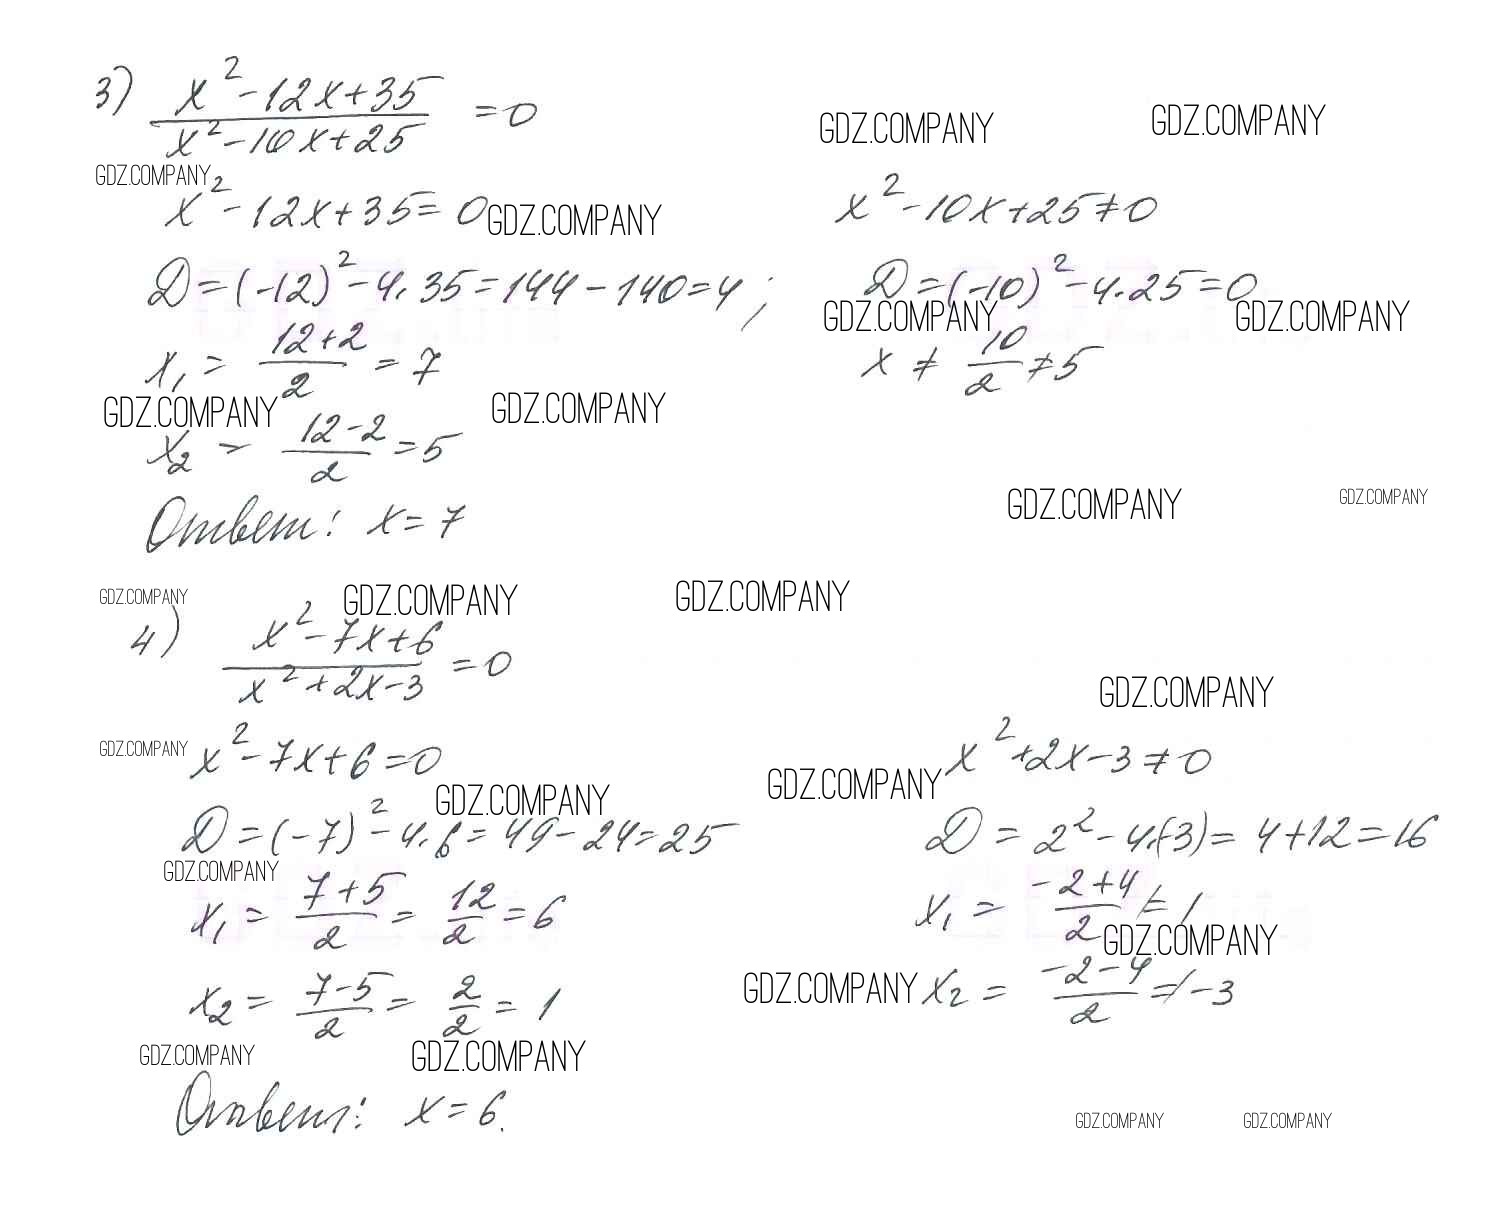 3) (x² - 12x + 35)/(x² - 10x + 25) = 0
GDZ.COMPANY GDZ.COMPANY
GDZ.COMPANY
x² - 12x + 35 = 0 GDZ.COMPANY x² - 10x + 25 ≠ 0
D = (-12)² - 4·35 = 144 - 140 = 4; D = (-10)² - 4·25 = 0
GDZ.COMPANY GDZ.COMPANY
x₁ = (12+2)/2 = 7 x ≠ 10/2 ≠ 5
GDZ.COMPANY GDZ.COMPANY
x₂ = (12-2)/2 = 5
GDZ.COMPANY GDZ.COMPANY
Ответ: x = 7
GDZ.COMPANY GDZ.COMPANY GDZ.COMPANY
4) (x² - 7x + 6)/(x² + 2x - 3) = 0
GDZ.COMPANY
GDZ.COMPANY x² - 7x + 6 = 0 x² + 2x - 3 ≠ 0
GDZ.COMPANY GDZ.COMPANY
D = (-7)² - 4·6 = 49 - 24 = 25 D = 2² - 4·(-3) = 4 + 12 = 16
GDZ.COMPANY
x₁ = (7+5)/2 = 12/2 = 6 x₁ = (-2+4)/2 ≠ 1
GDZ.COMPANY
x₂ = (7-5)/2 = 2/2 = 1 GDZ.COMPANY x₂ = (-2-4)/2 ≠ -3
GDZ.COMPANY GDZ.COMPANY
Ответ: x = 6.
GDZ.COMPANY GDZ.COMPANY